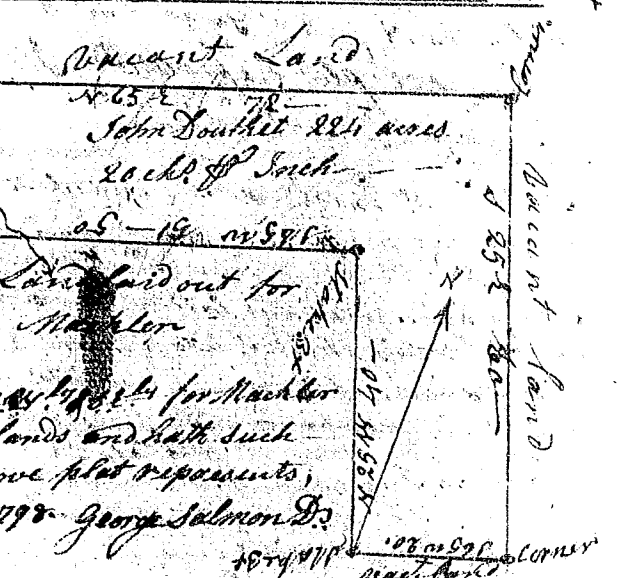 Vacant Land
N 65 E 72
John Douthet 224 acres
20 chs pr Inch
S 65 W 51 - 50
Land laid out for
Mackler
for Mackler
lands and hath such
ove plat represents,
1798 George Salmon D.S
Stake 3x
N 25 W 40 -
S 25 E
Vacant Land
Corner
Stake 3x
S 65 W 20.
Corner
Vacant Land